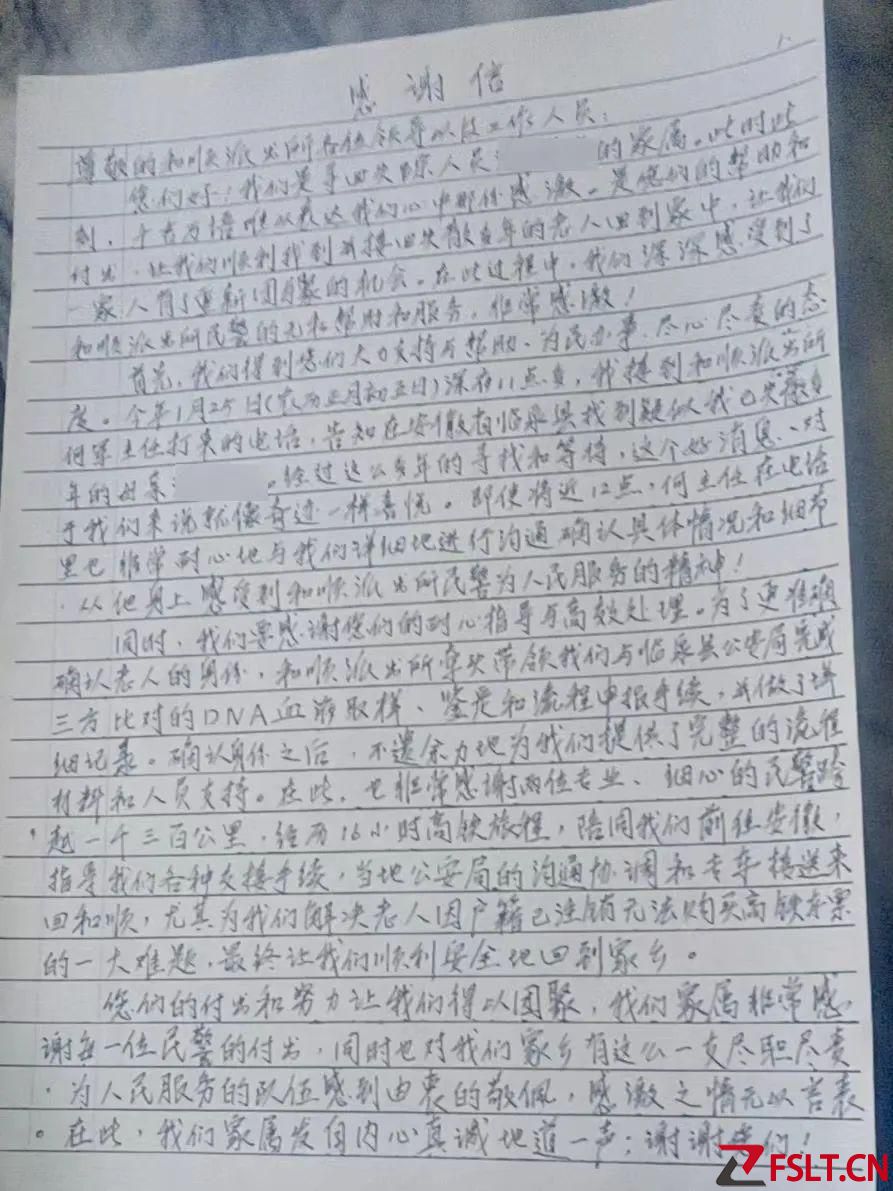 感谢信
尊敬的和顺派出所各位领导以及工作人员：
您们好！我们是寻回失踪人员 的家属。此时此
刻，千言万语难以表达我们心中那份感激。是您们的帮助和
付出，让我们顺利找到并接回失散多年的老人回到家中，让我们
一家人有了重新团聚的机会。在此过程中，我们深深感受到了
和顺派出所民警的无私帮助和服务，非常感激！
首先，我们得到您们大力支持与帮助、为民办事、尽心尽责的态
度。今年1月25日(农历正月初五日)深夜11点多，我接到和顺派出所
何军主任打来的电话，告知在安徽省临泉县找到疑似我已失散多
年的母亲 。经过这么多年的寻找和等待，这个好消息、对
于我们来说就像奇迹一样喜悦。即使将近12点，何主任在电话
里也非常耐心地与我们详细地进行沟通确认具体情况和细节
，从他身上感受到和顺派出所民警为人民服务的精神！
同时，我们要感谢您们的耐心指导与高效处理。为了更准确
确认老人的身份，和顺派出所牵头带领我们与临泉县公安局完成
三方比对的DNA血液取样、鉴定和流程申报手续，并做了详
细记录。确认身份之后，不遗余力地为我们提供了完整的流程
材料和人员支持。在此，也非常感谢两位专业、细心的民警跨
越一千三百公里，经历16小时高铁旅程，陪同我们前往安徽，
指导我们各种交接手续，当地公安局的沟通协调和专车接送来
回和顺，尤其为我们解决老人因户籍已注销无法购买高铁车票
的一大难题，最终让我们顺利安全地回到家乡。
您们的付出和努力让我们得以团聚，我们家属非常感
谢每一位民警的付出，同时也对我们家乡有这么一支尽职尽责
，为人民服务的队伍感到由衷的敬佩，感激之情无以言表
。在此，我们家属发自内心真诚地道一声：谢谢您们！
FSLT.CN